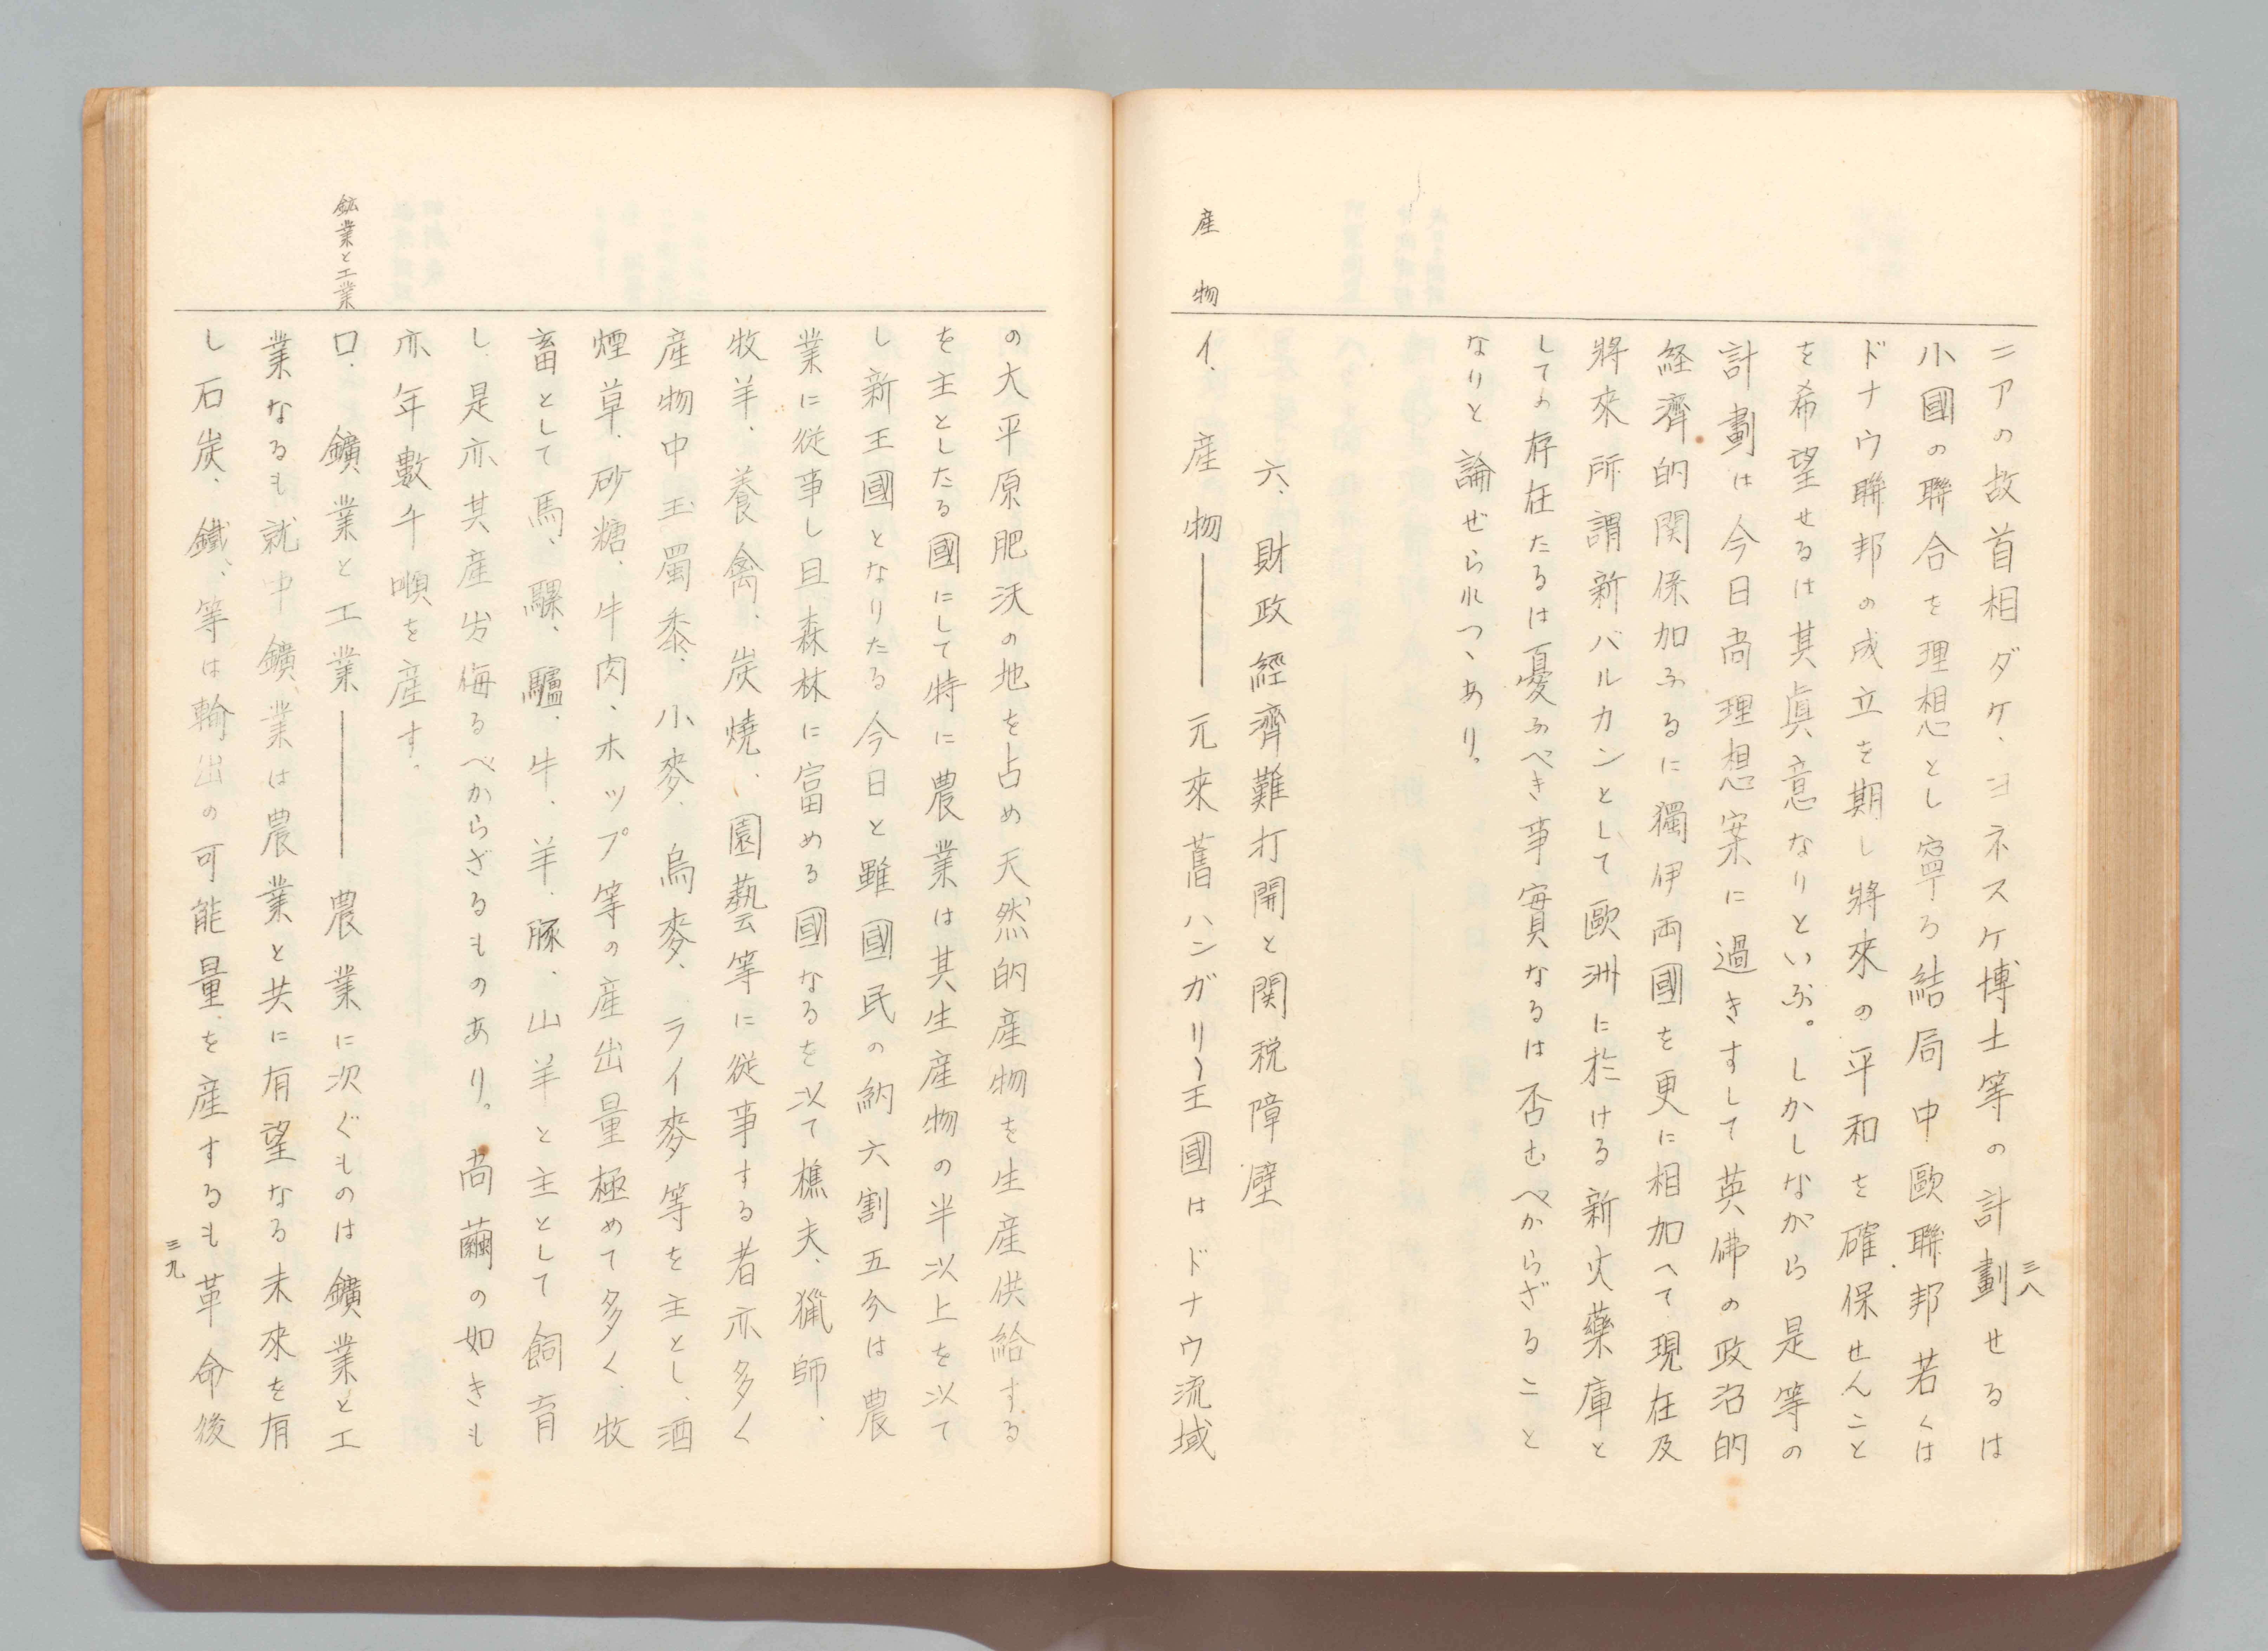 三八
ニアの故首相ダケ、ヨネスケ博士等の計劃せるは
小國の聯合を理想とし寧ろ結局中歐聯邦若くは
ドナウ聯邦の成立を期し將來の平和を確保せんこと
を希望せるは其眞意なりといふ。しかしながら是等の
計劃は今日尚理想案に過きすして英佛の政治的
経濟的関係加ふるに獨伊両國を更に相加へて現在及
將來所謂新バルカンとして歐洲に於ける新火藥庫と
しての存在たるは憂ふべき事實なるは否むべからざること
なりと論ぜられつゝあり。
六、財政經濟難打開と関税障壁
産物
イ、産物――元來舊ハンガリー王國はドナウ流域
の大平原肥沃の地を占め天然的産物を生産供給する
を主としたる國にして特に農業は其生産物の半以上を以て
し新王國となりたる今日と雖國民の約六割五分は農
業に従事し且森林に富める國なるを以て樵夫、獵師、
牧羊、養禽、炭燒、園藝等に従事する者亦多く
産物中玉蜀黍、小麥、烏麥、ライ麥等を主とし、酒
煙草、砂糖、牛肉、ホップ等の産出量極めて多く、牧
畜として馬、騾、驢、牛、羊、豚、山羊と主として飼育
し是亦其産出侮るべからざるものあり。尚繭の如きも
亦年數千噸を産す。
鉱業と工業
ロ、鑛業と工業――農業に次ぐものは鑛業と工
業なるも就中鑛業は農業と共に有望なる未來を有
し石炭、鐵、等は輸出の可能量を産するも革命後
三九